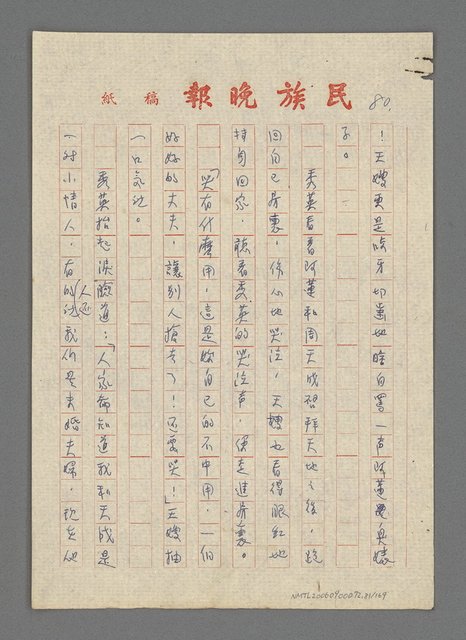 民族晚報 稿紙
80.
！王嫂更是咬牙切齒地暗自罵一聲阿蓮是臭婊
子。
秀英看着阿蓮和周天成習拜天地之後，跑
回自己房裏，傷心地哭泣，天轉也看得眼紅地
轉身回家，聽着秀英的哭泣聲，便走進房裏。
「哭有什麼用，這是妳自己的不中用，一個
好好的丈夫，讓別人搶去了！還要哭！」王嫂抽
一口氣說。
秀英抬起淚臉道：「人家都知道我和天成是
一對小情人，有的人還說我們是未婚夫婦，現在他
NMTL20060400072.81/169